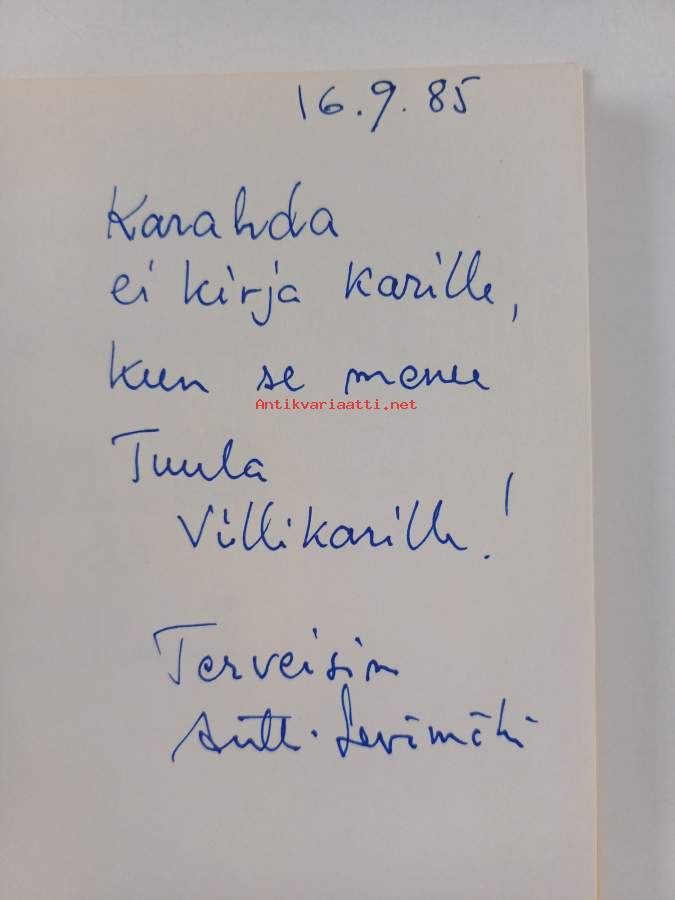 16.9.85
Karahda
ei kirja Karille,
kun se menee
Antikvariaatti.net
Tuula
Villikarille!
Terveisin
Antti Levimäki